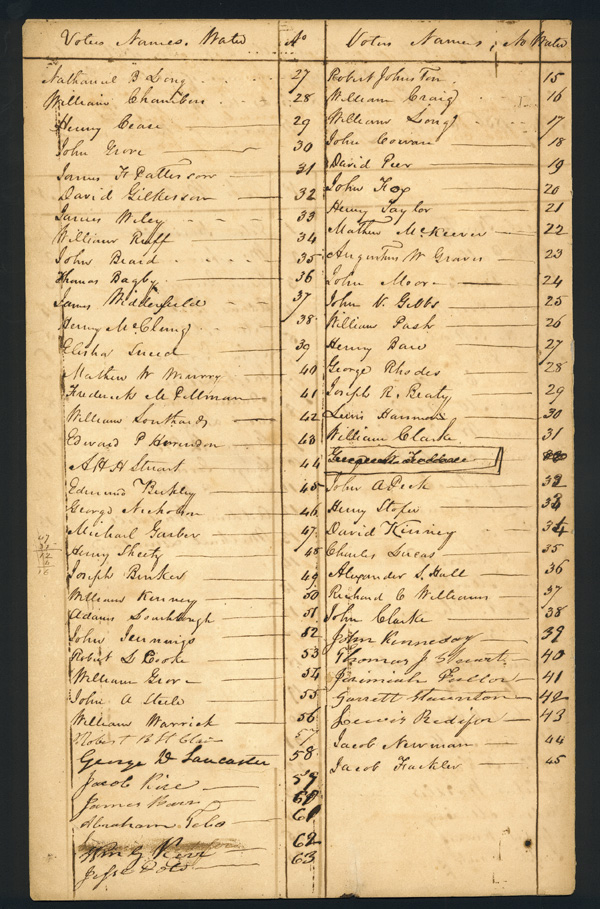 Voters Names. Water No
Nathaniel B Long 27
William Chambers 28
Henry Cease 29
John Grove 30
James F Patterson 31
David Gilkerson 32
James Wiley 33
William Ruff 34
John Beard 35
Thomas Bagby 36
James Widdefield 37
Henry McClung 38
Elisha Sneed 39
Mathew W 40
Frederick M 41
William Southards 42
Edward P 43
A H H Stuart 44
Edmund Berkley 45
George Nicholson 46
Michael Garber 47
Henry Sheetz 48
Joseph Bunker 49
William Kenney 50
Adam 51
John Jennings 52
Robert S Cooke 53
William Grove 54
John A Steele 55
William Warrick 56
Robert B St Clair 57
George D Lancaster 58
Jacob Rice 59
James 60
Abraham 61
62
63
Voters Names, No Water
Robert Johnston 15
William Craig 16
William Long 17
John Cowan 18
David Peer 19
John Fox 20
Henry Taylor 21
Mathew McKeever 22
Augustus W Graves 23
John Moore 24
John N. Gibbs 25
William Pash 26
Henry Bare 27
George Rhodes 28
Joseph R. Beaty 29
Lewis Harman 30
William Clarke 31
John A Peck 32
Henry Stofer 33
David Kinney 34
Charles Lucas 35
Alexander S. Hall 36
Richard C Williams 37
John Clarke 38
John Kennedy 39
Thomas J Stuart 40
Jeremiah Fuller 41
Garrett Staunton 42
Lewis Redifor 43
Jacob Newman 44
Jacob Fackler 45